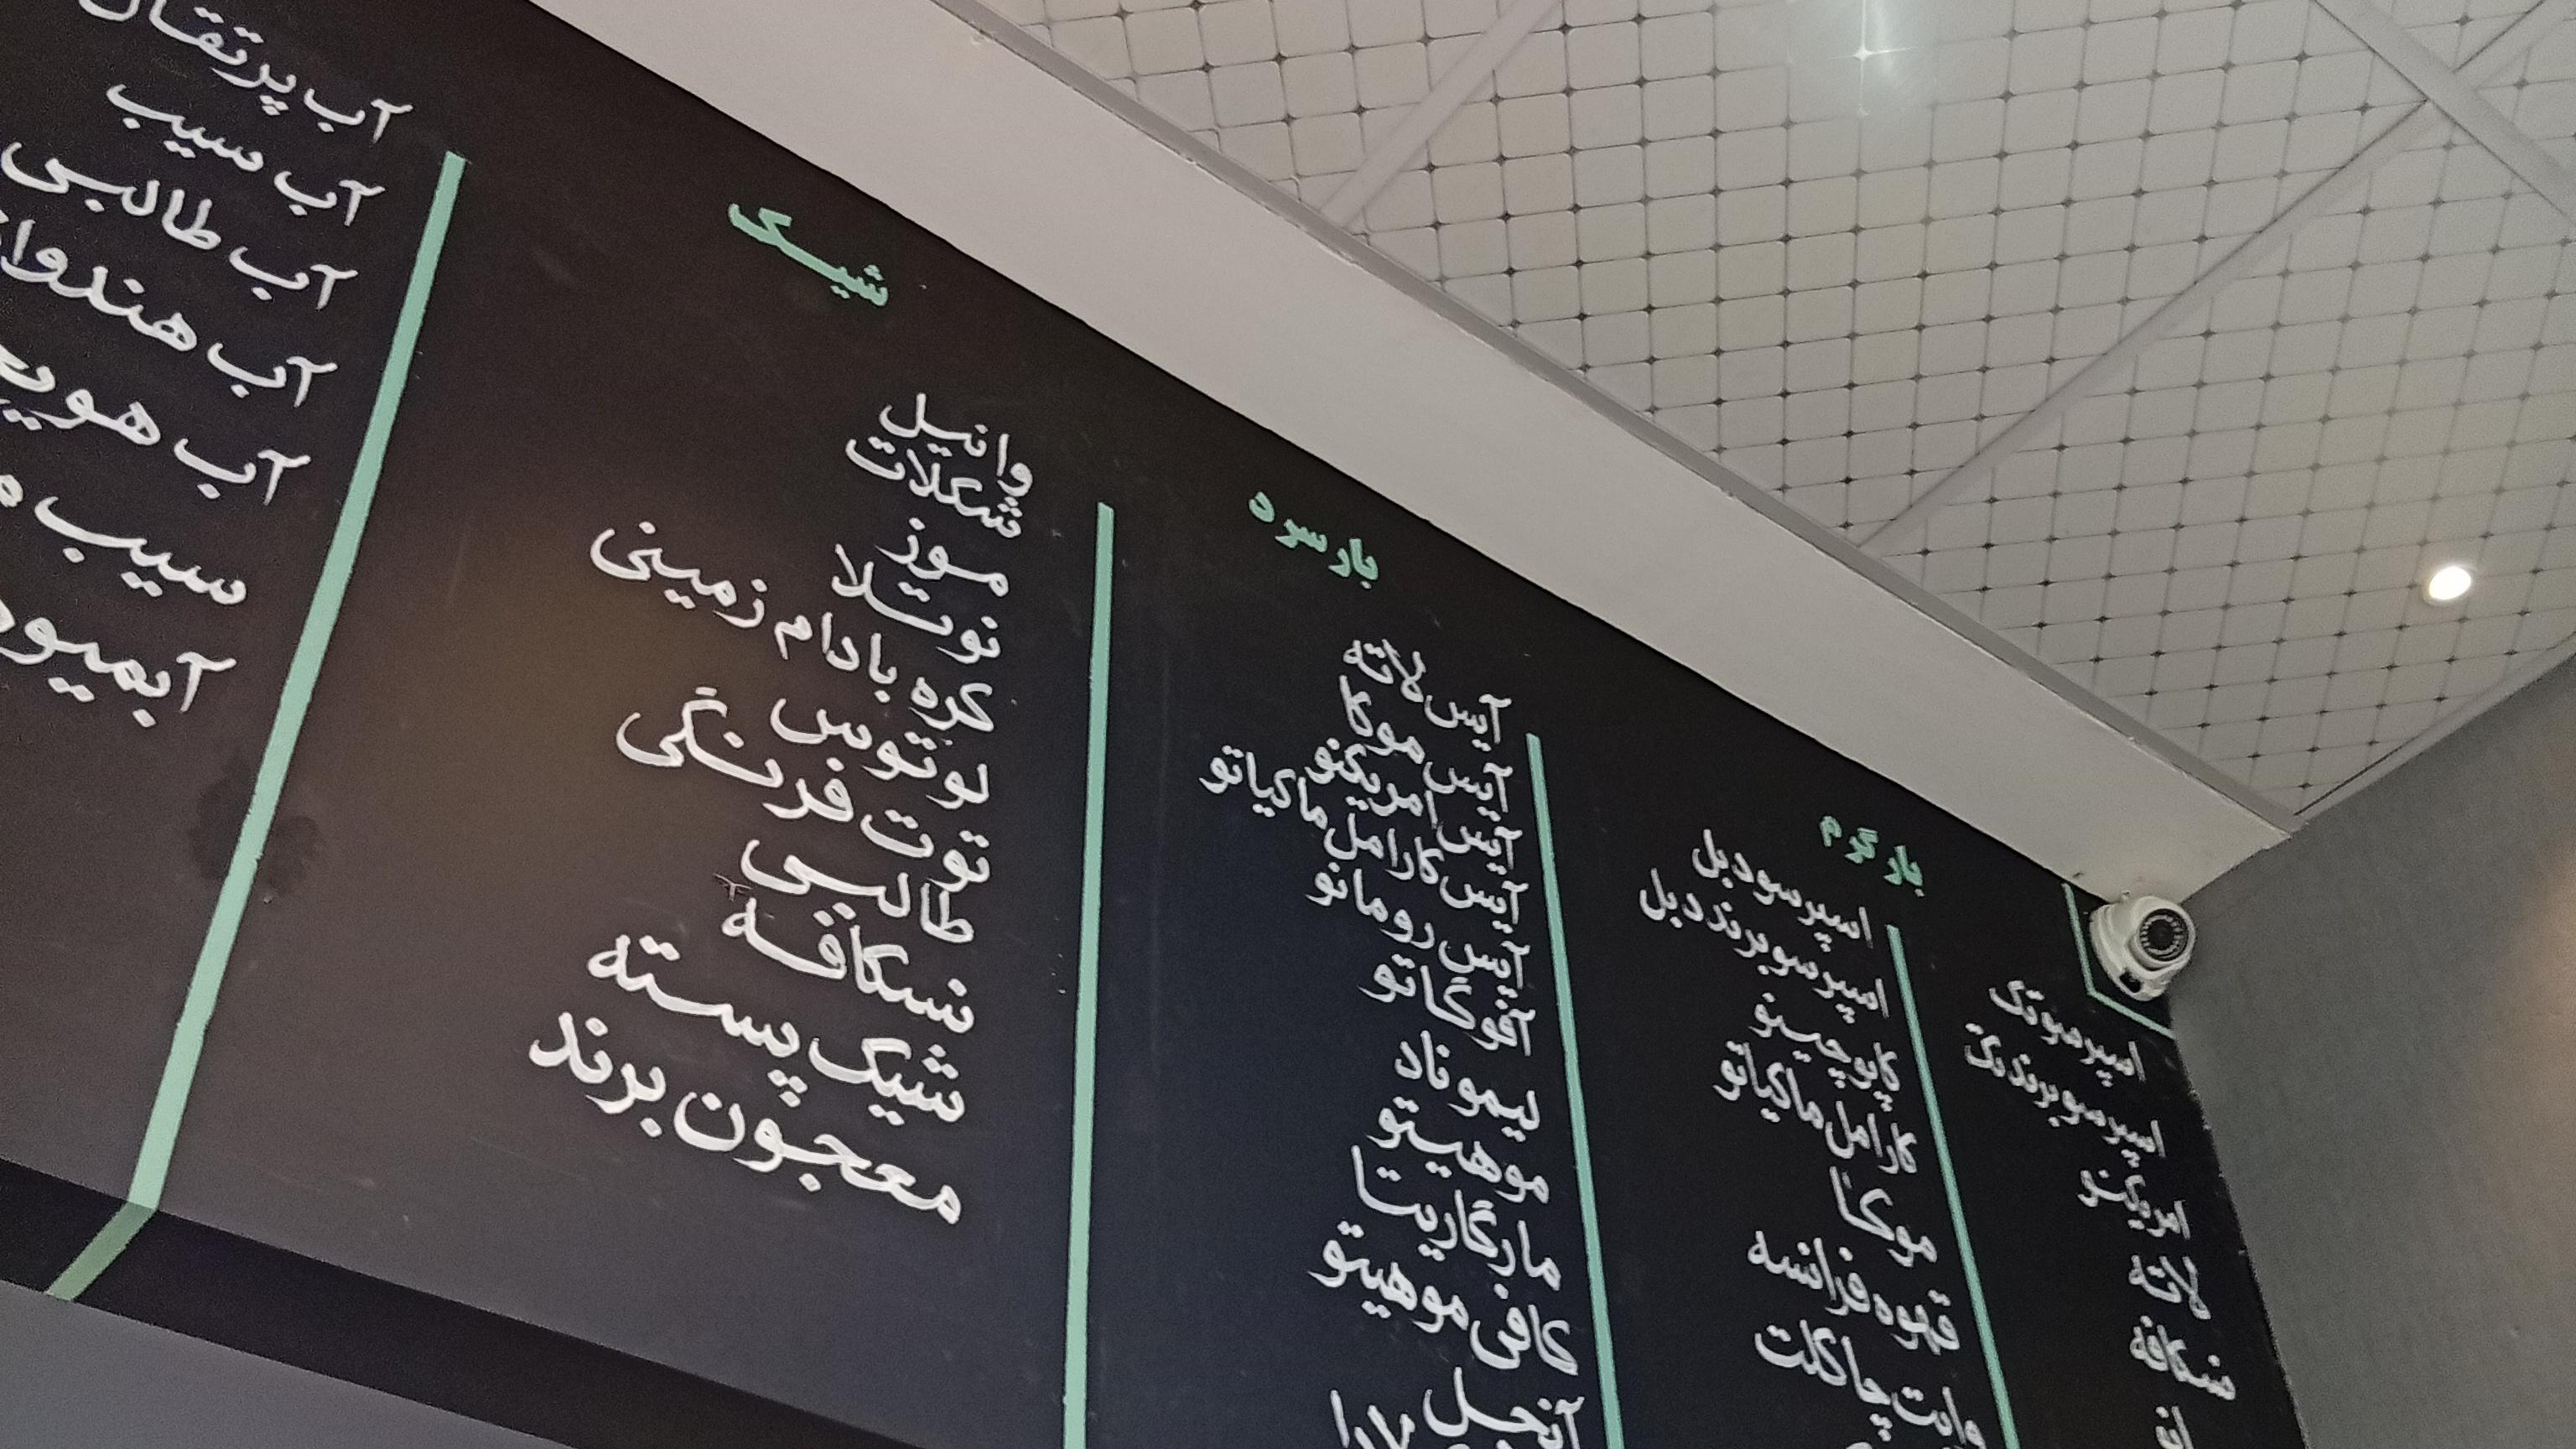 اسپرسو تک
اسپرسو برند تک
امریکنو
لاته
نسکافه
بار گرم
اسپرسو دبل
اسپرسو برند دبل
کاپوچینو
کارامل ماکیاتو
موکا
قهوه فرانسه
وایت چاکلت
بار سرد
آیس لاته
آیس موکا
آیس امریکنو
آیس کارامل ماکیاتو
آیس رومانو
آفوگاتو
لیموناد
موهیتو
مارگاریتا
کافی موهیتو
آنجل
شیک
وانیل
شکلات
موز
نوتلا
کره بادام زمینی
لوتوس
توت فرنگی
طالبی
نسکافه
شیک پسته
معجون برند
آب پرتقال
آب سیب
آب طالبی
آب
آب
سیب